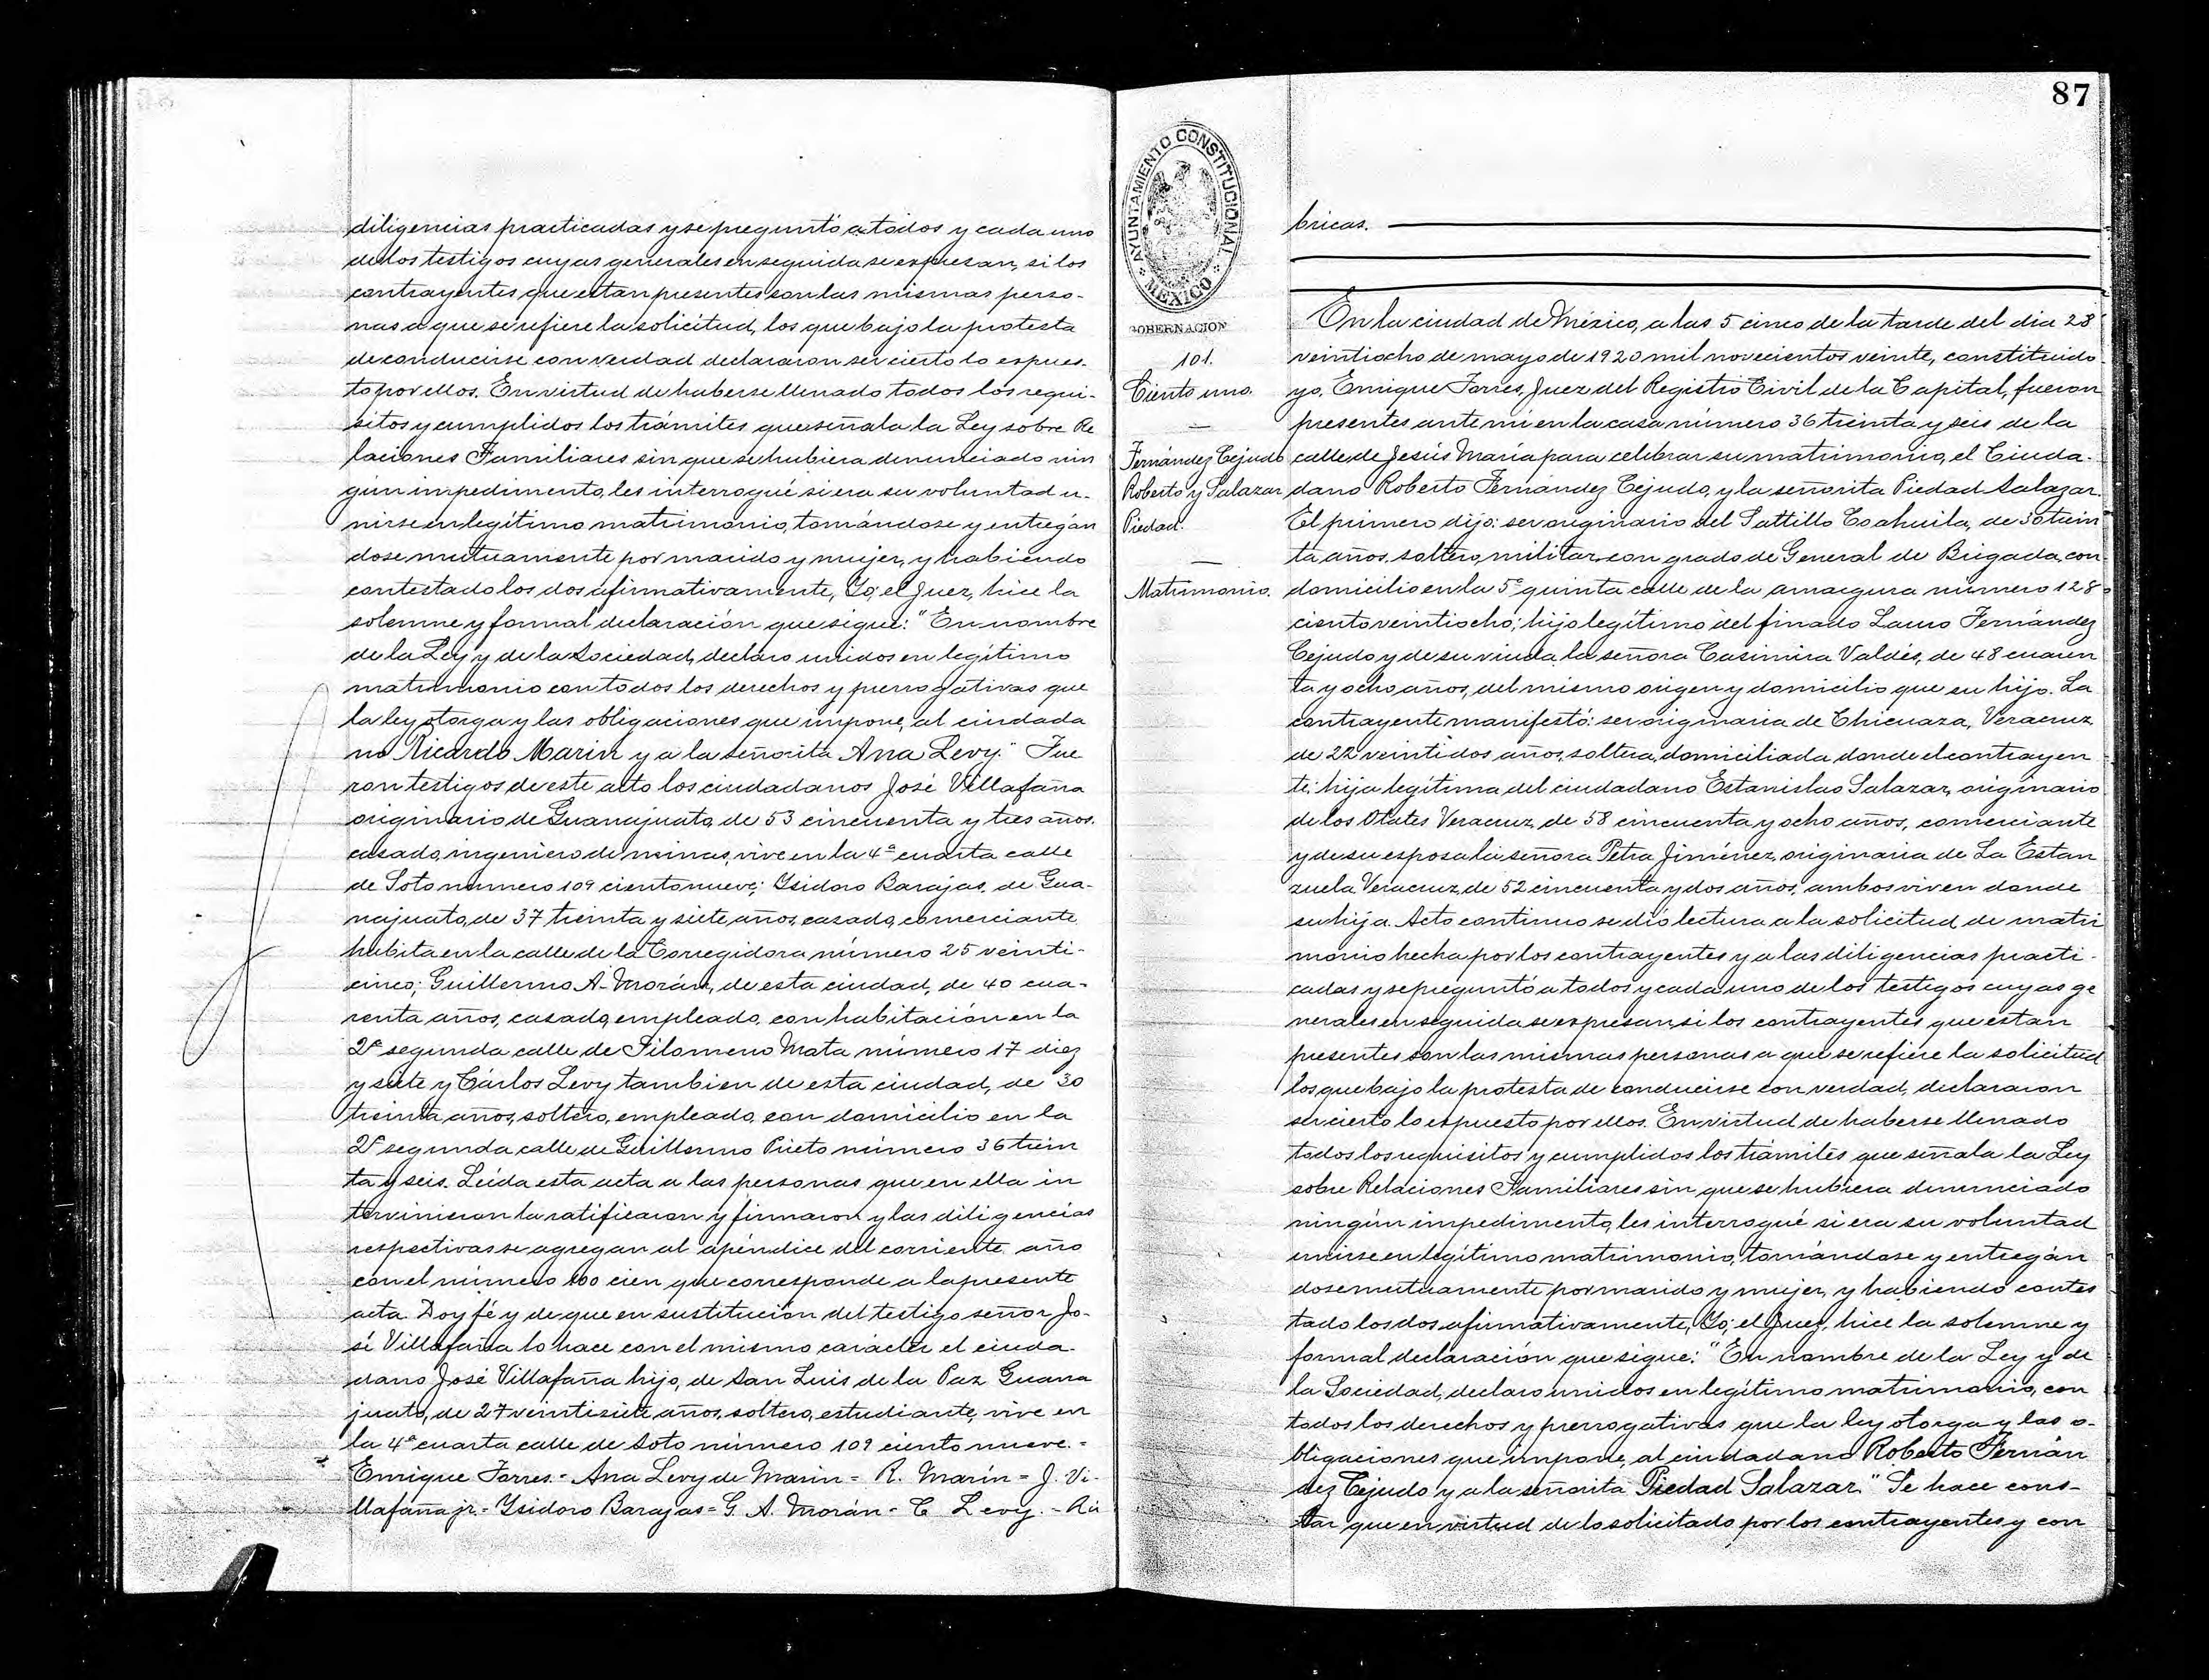 diligencias practicadas y se preguntó a todos y cada uno
de los testigos cuyas generales en seguida se expresan, si los
contrayentes que estan presentes son las mismas perso-
nas a que se refiere la solicitud, los que bajo la protesta
de conducirse con verdad declararon ser cierto lo espues-
to por ellos. En virtud de haberse llenado todos los requi-
sitos y cumplidos los trámites que señala la Ley sobre Re
laciones Familiares sin que se hubiera denunciado nin
gún impedimento, les interrogué si era su voluntad u-
nirse en legítimo matrimonio, tomándose y entregán
dose mutuamente por marido y mujer, y habiendo
contestado los dos afirmativamente, Yo, el Juez, hice la
solemne y formal declaración que sigue: "En nombre
de la Ley y de la Sociedad, declaro unidos en legítimo
matrimonio con todos los derechos y prerrogativas que
la ley otorga y las obligaciones que impone, al ciudada
no Ricardo Marin y a la señorita Ana Levy." Fue
ron testigos de este acto los ciudadanos José Villafaña
originario de Guanajuato, de 53 cincuenta y tres años.
casado, ingeniero de minas, vive en la 4ª cuarta calle
de Soto número 109 ciento nueve; Ysidoro Barajas, de Gua-
najuato, de 37 treinta y siete años, casado, comerciante
habita en la calle de la Corregidora número 25 veinti-
cinco; Guillermo A. Morán, de esta ciudad, de 40 cua-
renta años, casado, empleado, con habitación en la
2ª segunda calle de Filomeno Mata número 17 diez
y siete y Cárlos Levy tambien de esta ciudad, de 30
treinta años, soltero, empleado, con domicilio en la
2ª segunda calle de Guillermo Prieto número 36 trein
ta y seis. Leída esta acta a las personas que en ella in
tervinieron la ratificaron y firmaron y las diligencias
respectivas se agregan al apéndice del corriente año
con el número 100 cien que corresponde a la presente
acta. Doy fé y de que en sustitución del testigo señor Jo-
sé Villafaña lo hace con el mismo carácter el ciuda-
dano José Villafaña hijo, de San Luis de la Paz Guana
juato, de 27 veintisiete años, soltero, estudiante, vive en
la 4ª cuarta calle de Soto número 109 ciento nueve.-
Enrique Torres.- Ana Levy de Marin = R. Marín = J. Vi-
llafaña jr.- Ysidoro Barajas = G. A. Morán - C Levy.- Rú
87
AYUNTAMIENTO CONSTITUCIONAL
MEXICO
GOBERNACION
101.
Ciento uno.
Fernández Cejudo
Roberto y Salazar
Piedad.
Matrimonio.
bricas.
En la ciudad de México, a las 5 cinco de la tarde del dia 28
veintiocho de mayo de 1920 mil novecientos veinte, constituido
yo, Enrique Torres, Juez del Registro Civil de la Capital, fueron
presentes ante mí en la casa número 36 treinta y seis de la
calle de Jesús María para celebrar su matrimonio, el Ciuda-
dano Roberto Fernández Cejudo, y la señorita Piedad Salazar.
El primero dijo: ser originario del Saltillo Coahuila, de 30 trein
ta años, soltero, militar con grado de General de Brigada, con
domicilio en la 5ª quinta calle de la amargura número 128
ciento veintiocho; hijo legítimo del finado Lauro Fernández
Cejudo y de su viuda la señora Casimira Valdés, de 48 cuaren
ta y ocho años, del mismo origen y domicilio que su hijo. La
contrayente manifestó: ser originaria de Chicuaza, Veracruz
de 22 veintidos años, soltera, domiciliada donde el contrayen
te; hija legítima del ciudadano Estanislao Salazar, originario
de los Otates Veracruz, de 58 cincuenta y ocho años, comerciante
y de su esposa la señora Petra Jiménez, originaria de La Estan
zuela Veracruz, de 52 cincuenta y dos años, ambos viven donde
su hija. Acto continuo se dio lectura a la solicitud de matri
monio hecha por los contrayentes y a las diligencias practi-
cadas y se preguntó a todos y cada uno de los testigos cuyas ge
nerales en seguida se expresan si los contrayentes que estan
presentes son las mismas personas a que se refiere la solicitud
los que bajo la protesta de conducirse con verdad, declararon
ser cierto lo espuesto por ellos. En virtud de haberse llenado
todos los requisitos y cumplidos los trámites que señala la Ley
sobre Relaciones Familiares sin que se hubiera denunciado
ningún impedimento, les interrogué si era su voluntad
unirse en legítimo matrimonio, tomándose y entregán
dose mutuamente por marido y mujer, y habiendo contes
tado los dos afirmativamente, Yo, el Juez, hice la solemne y
formal declaración que sigue: "En nombre de la Ley y de
la Sociedad, declaro unidos en legítimo matrimonio, con
todos los derechos y prerrogativas que la ley otorga y las o-
bligaciones que impone, al ciudadano Roberto Fernán
dez Cejudo y a la señorita Piedad Salazar." Se hace cons-
tar, que en virtud de lo solicitado por los contrayentes y con